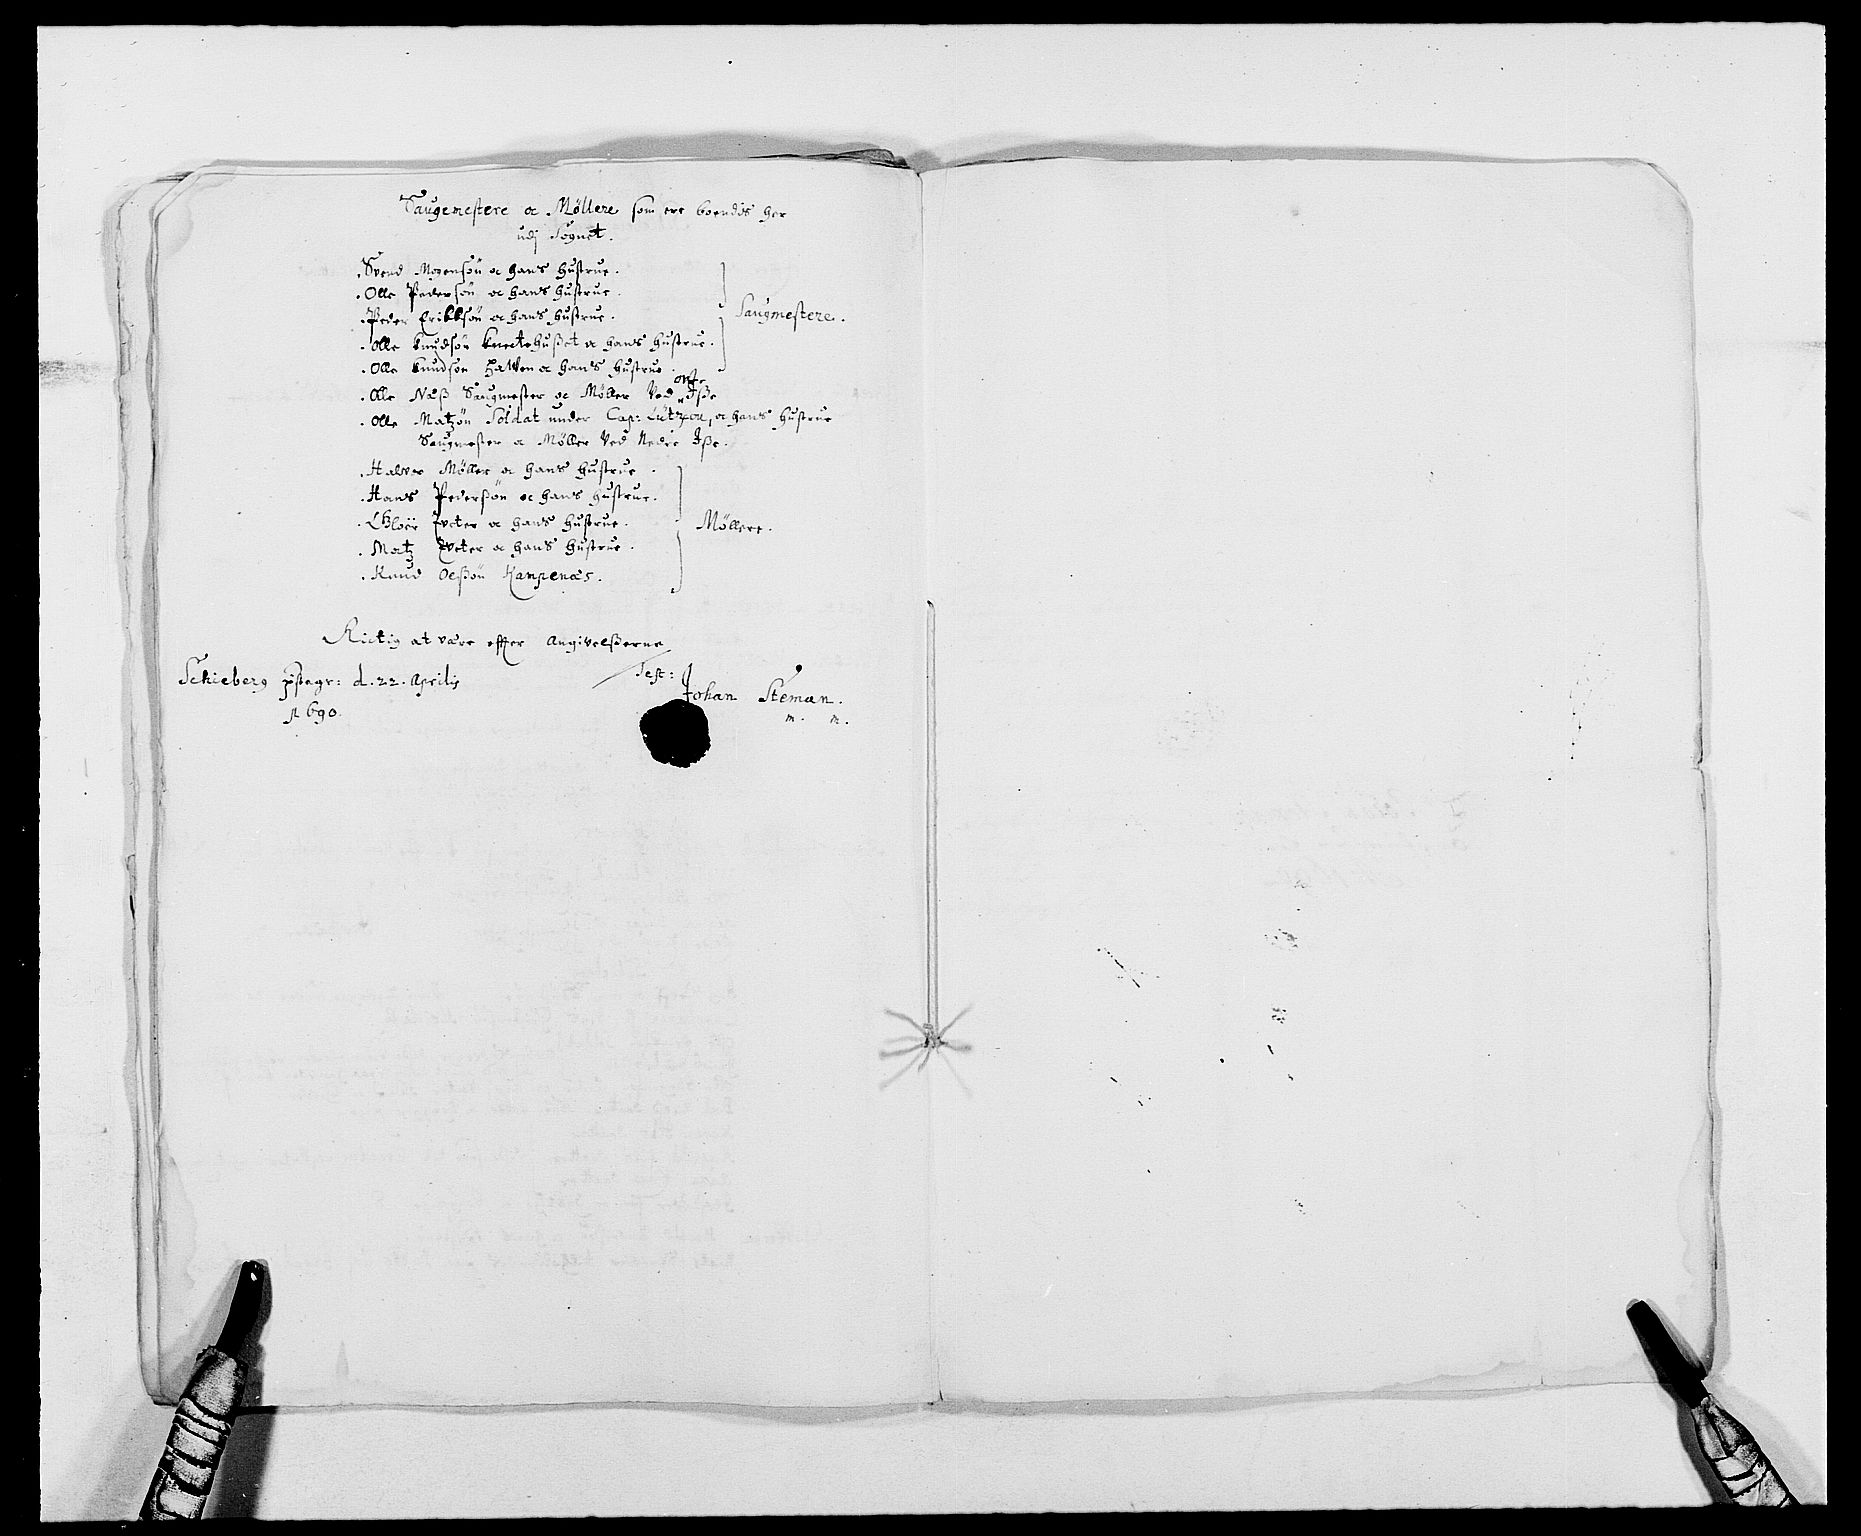 Saugemestere oc Møllere som ere boendis her
udj Sognet.
. Svend Mogensøn oc hans hustrue.
. Olle Pedersøn oc hans hustrue.
. Peder Erikksøn oc hans hustrue.
Saugmestere.
. Olle Knudsøn Knectehußet oc hans hustrue.
. Olle Knudsøn Halden oc hans hustrue.
. Olle Næß Saugmester oc Møller Ved Iße
. Olle Matzøn Soldat under Cap: Lützou, oc hans hustrue
Saugmester oc Møller Ved Nedre Ißc.
. Halvor Møller oc hans hustrue.
. Hans Pederßøn oc hans hustrue.
Tveter oc hans hustrue.
Møllere.
. Matz Tveter oc hans hustrue.
. Knud Oelßøn Kampenæs.
Rictig at være effter Angivelßerne
Test:
Schieberg præstegr: d. 22. Aprilis
Johan Steman.
1690.
m. m.